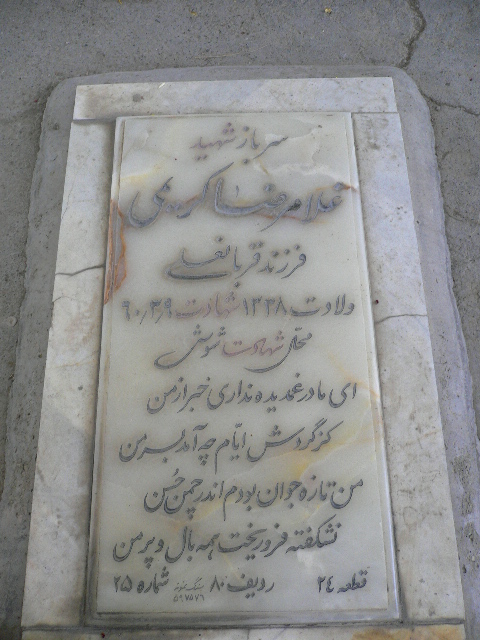 سرباز شهید
غلامرضا کریمی
فرزند قربانعلی
ولادت ۱۳۳۸ شهادت ۶۰/۳/۹
محل شهادت شوش
ای مادر غمدیده نداری خبر از من
کز گردش ایّام چه آمد بسر من
من تازه جوان بودم اندر چمن حُسن
نشکفته فرو ریخت همه بال و پر من
قطعه ۲٤ ردیف ۸۰ شماره ۲۵